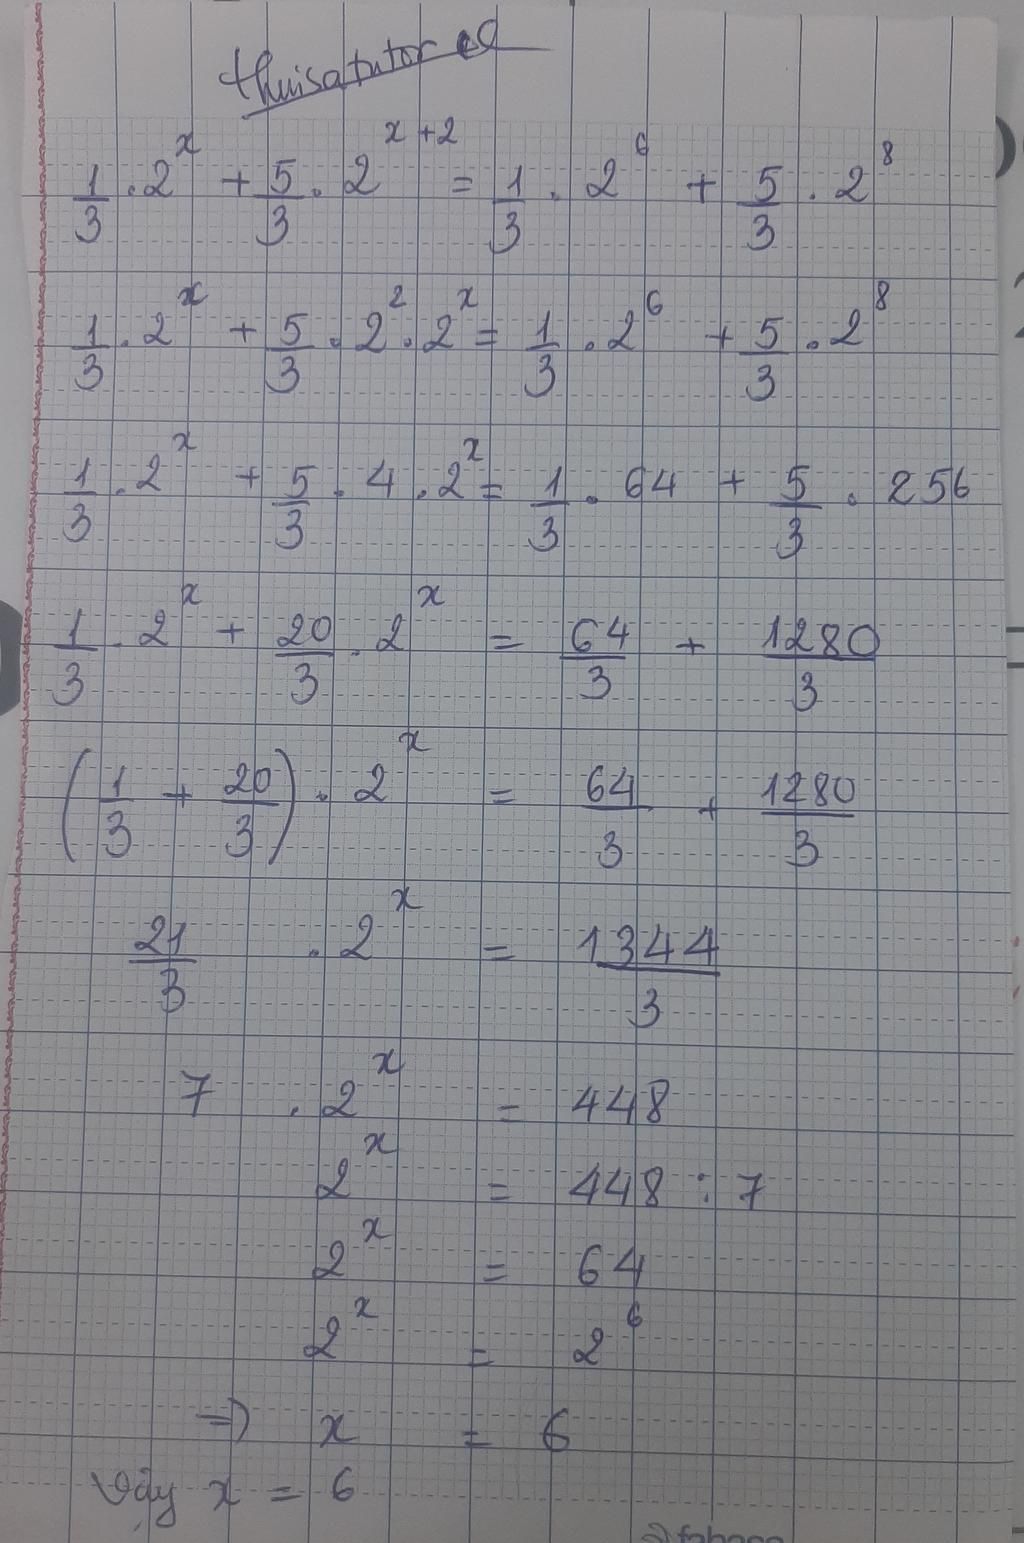 thuisatutor
1/3 . 2^x + 5/3 . 2^(x+2) = 1/3 . 2^6 + 5/3 . 2^8
1/3 . 2^x + 5/3 . 2^2 . 2^x = 1/3 . 2^6 + 5/3 . 2^8
1/3 . 2^x + 5/3 . 4 . 2^x = 1/3 . 64 + 5/3 . 256
1/3 . 2^x + 20/3 . 2^x = 64/3 + 1280/3
(1/3 + 20/3) . 2^x = 64/3 + 1280/3
21/3 . 2^x = 1344/3
7 . 2^x = 448
2^x = 448 : 7
2^x = 64
2^x = 2^6
=> x = 6
Vậy x = 6